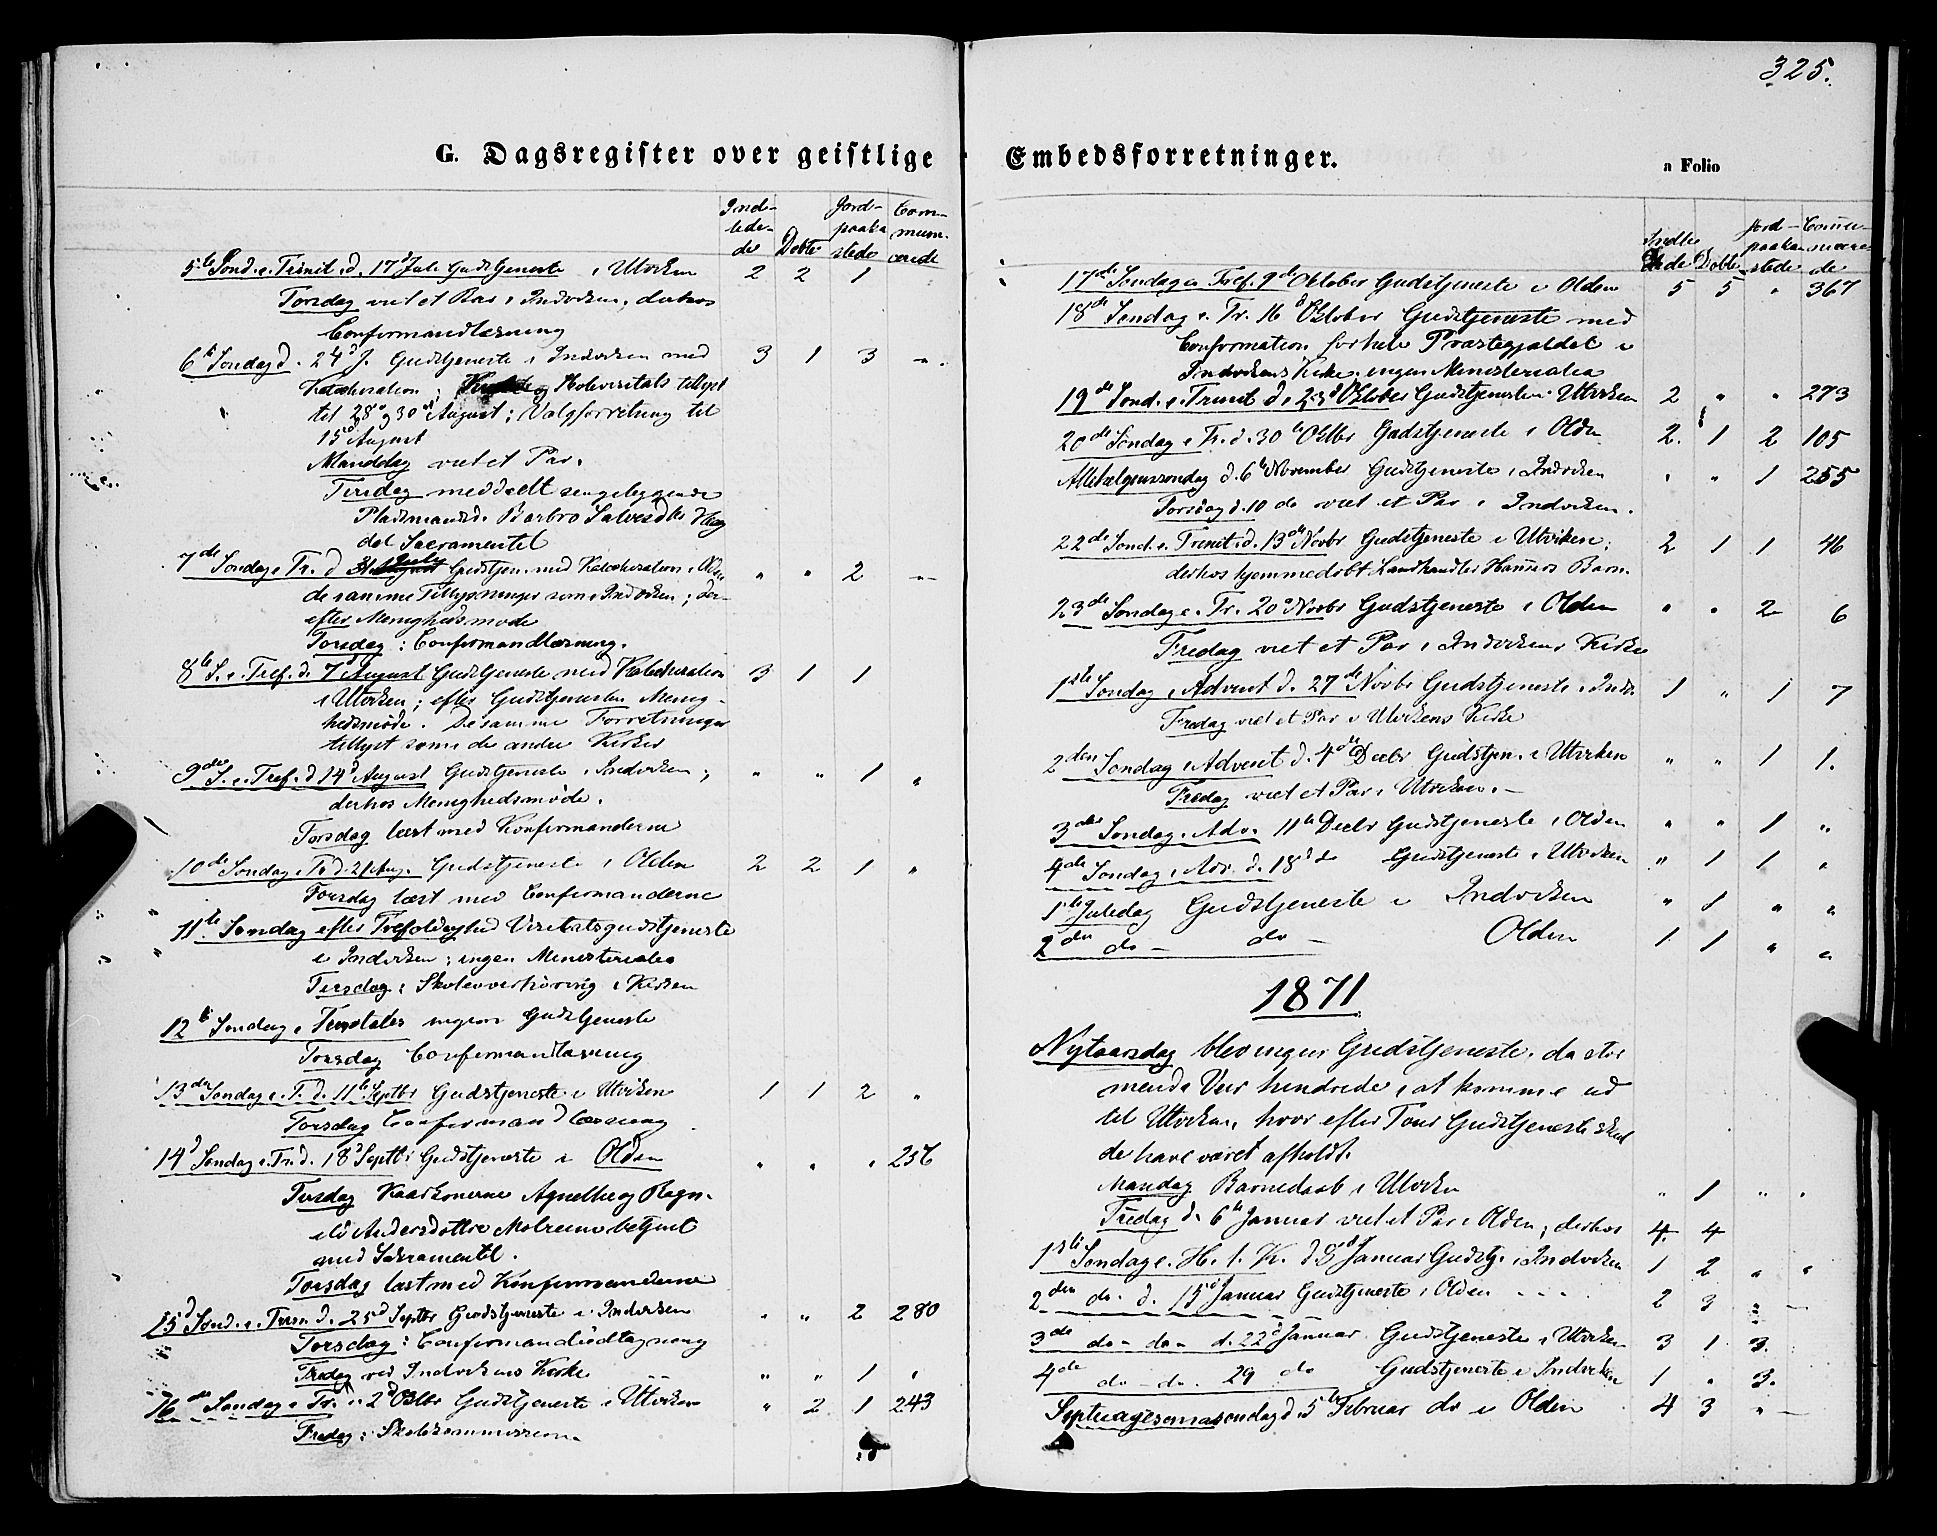 325.
G. Dagsregister over geistlige Embedsforretninger.
a Folio
Ind-
lede-
de
Døbte
Jord-
paaka
stede
Com-
mum-
cerede
5te Sønd. e. Trinit. d. 17d Juli Gudstjeneste i Utvken 2 2 1
Torsdag viet et Par i Indviken, derhos
Confirmandlæsning
6te Søndag d. 24d J. Gudstjeneste i Indviken med 3 1 3 "
Katekisation; Skolevisitats tillyst
til 28de og 30te August; Valgforretning til
15d August
Manddag viet et Par.
Tirsdag meddeelt sengeliggende
Pladsmands. Barbro Salvesdtr
Sacramentet
7de Søndag e. Tr. d 31 Juli Gudstjen. med Katekisation i Olden " " 2 "
de samme Tillysninger som i Indviken; der-
efter Menighedsmøde
Torsdag: Confirmandlæsning.
8de S. e. Tref. d. 7d August Gudstjeneste med Katekisation 3 1 1
i Utviken; efter Gudstjenesten Menig-
hedsmøde. De samme Forretninger
tillyst som i de andre Kirker
9de S. e. Tref. d 14d August Gudstjeneste i Indviken; " " 1 "
derhos Menighedsmøde.
Torsdag læst med Konfirmanderne
10de Søndag e. Tr. d. 21 Aug. Gudstjeneste i Olden 2 2 1 "
Torsdag læst med Confirmanderne
11te Søndag efter Trefoldighed Visitatsgudstjeneste
i Indviken; ingen Ministerialia
Tirsdag: Skoleoverhøring i Kirken
12te Søndag e. Trinitatis ingen Gudstjeneste
Torsdag Confirmandlæsning
13de Søndag e. T. d. 11te Septbr Gudstjeneste i Utviken 1 1 2 "
Torsdag Confirmandlæsning
14d Søndag e. Tr. d. 18d Septbr Gudstjeneste i Olden " " " 256
Tirsdag Kaarkonerne Agnethe og Ragn-
ild Andersdøttre Melreim betjent
med Sakramentet.
Torsdag læst med Konfirmanderne
15d Sønd. e. Trin. d. 25d Septbr Gudstjeneste i Indviken " " 2 280
Torsdag: Confirmandudtagning
Fredag ved Indvikens Kirke " " 1 "
16de Søndag e. Tr. 2d Oktbr Gudstjeneste i Utviken " 2 1 243
Fredag: Skolekommission.
Indle
dede
Døbte
Jord-
paaka
stede
Commu-
nicere-
de
17de Søndag e Tref. 9de Oktober Gudstjeneste i Olden 5 5 " 367
18de Søndag e. Tr. 16d Oktober Gudstjeneste med
Confirmation for hele Præstegjældet i
Indvikens Kirke, ingen Ministerialia
19de Sønd. e. Trinit d. 23d Oktober Gudstjeneste i Utviken 2 " " 273
20de Søndag e Tr. d. 30te Oktbr Gudstjeneste i Olden 2. 1 2 105
Allehelgenssøndag d. 6te November Gudstjeneste i Indviken " " 1 255
Torsdag d. 10 de viet et Par i Indviken.
22de Sønd. e. Trinit. d. 13de Novbr Gudstjeneste i Utviken; 2 1 1 46
derhos hjemmedøbt Landhandler Barn.
23de Søndag e. Tr. 20d Novbr Gudstjeneste i Olden " " 2 6
Fredag viet et Par i Indvikens Kirke
1ste Søndag i Advent d. 27de Novbr Gudstjeneste i Indv. 1 " 1 7
Fredag viet et Par i Utvikens Kirke
2den Søndag i Advent d. 4de Decbr Gudstjen. i Utviken " " 1 1.
Fredag viet et Par i Utviken.
3die Søndag i Adv. 11te Decbr Gudstjeneste i Olden " " 1 "
4de Søndag i Adv. d. 18d do Gudstjeneste i Utviken " 1 1 "
1ste Juledag Gudstjeneste i Indviken " 1 " "
2den do - do - Olden 1 1 " "
1871
Nytaarsdag blev ingen Gudstjeneste, da stor
mende Veir hindrede i at komme ud
til Utviken, hvor efter Tour Gudstjeneste skul
de have været afholdt.
Mandag Barnedaab i Utviken " 1 " "
Fredag d. 6te Januar viet et Par i Olden; derhos 4. 4
1ste Søndag e. H. 3. K. d. 8d Januar Gudstj. i Indviken 1 2 " "
2den do. d. 15d Januar Gudstjeneste i Olden 2 3 " -
3die do - do - d. 22d Januar Gudstjeneste i Utviken 3 1 3.
4de do - do. 29 do Gudstjeneste i Indviken 1 " 3.
Septuagesimasøndag d. 5te Februar do i Olden 4 3 " -